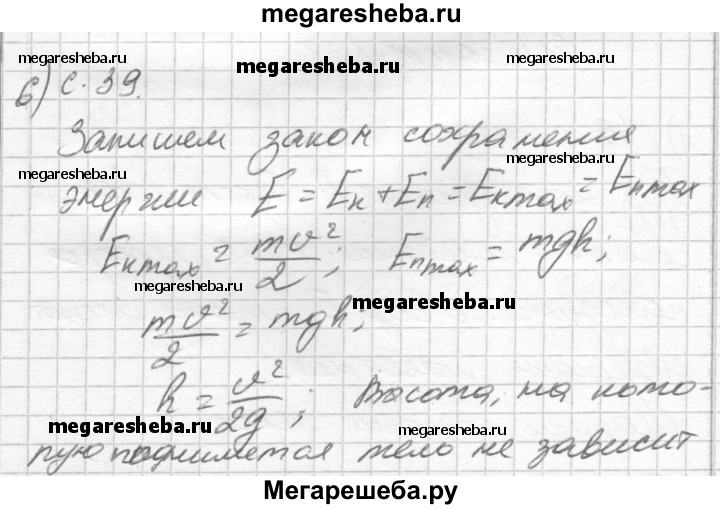 megaresheba.ru
megaresheba.ru megaresheba.ru megaresheba.ru
6) с. 39.
Запишем закон сохранения
megaresheba.ru megaresheba.ru
энергии E = Eк + Eп = Eкmax = Eпmax
Eкmax = mv²/2; Eпmax = mgh;
megaresheba.ru megaresheba.ru
mv²/2 = mgh;
h = v²/2g; Высота, на кото-
megaresheba.ru megaresheba.ru
рую поднимется тело не зависит
Мегарешеба.ру